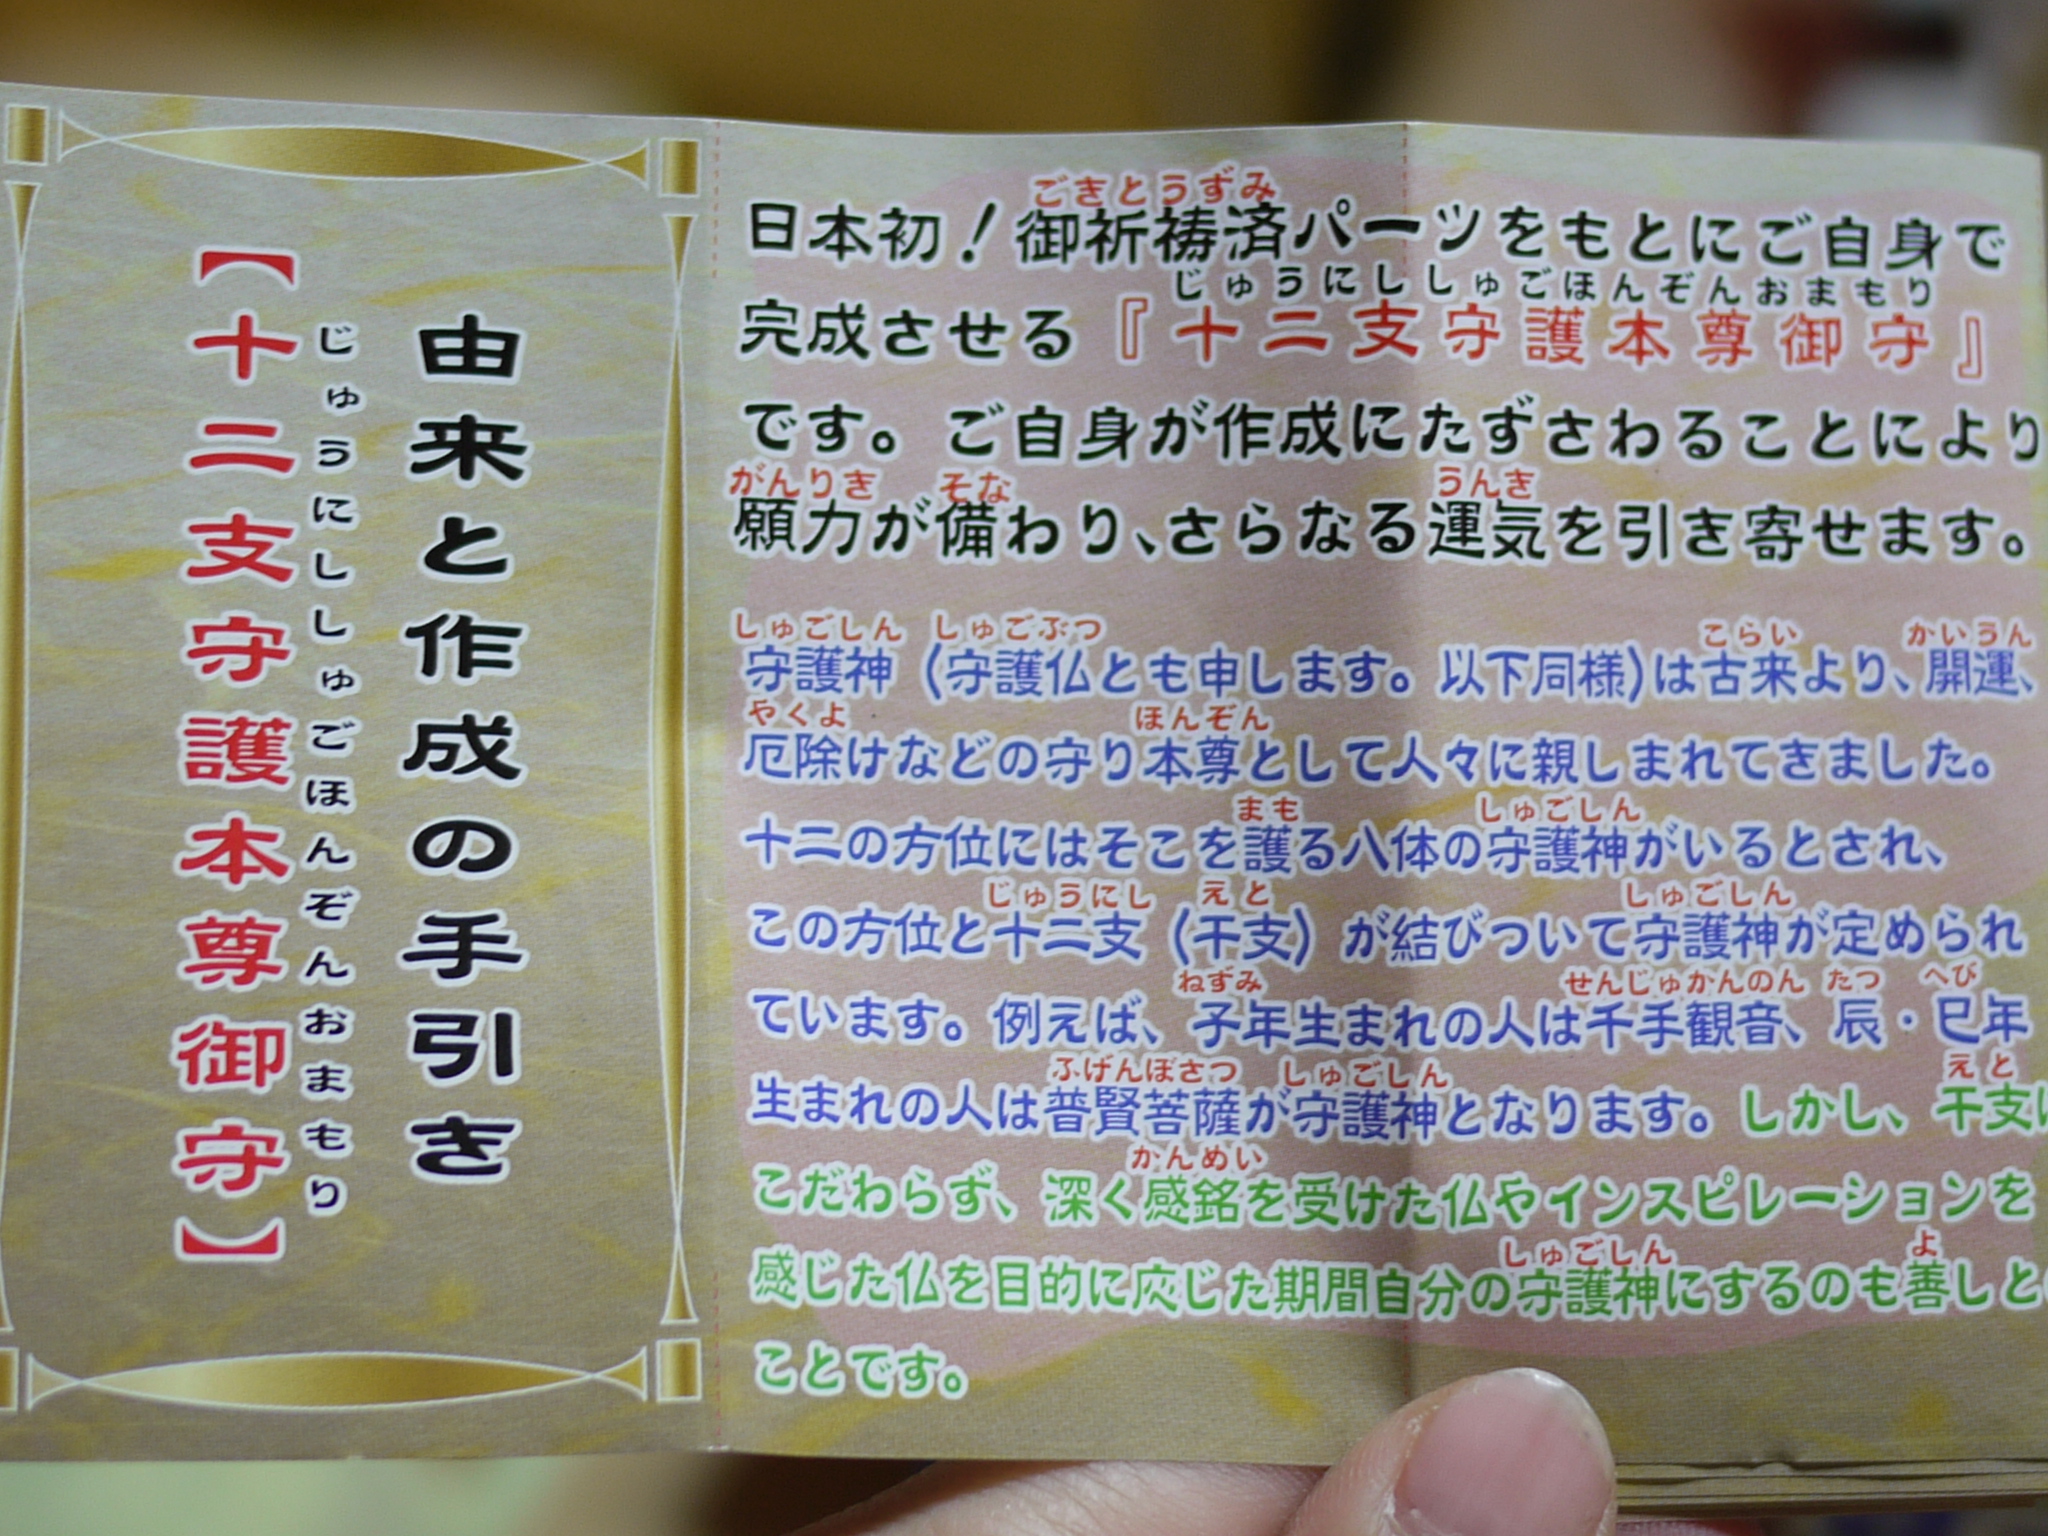 【十二支守護本尊御守】
じゅうにししゅごほんぞんおまもり
由来と作成の手引き
ごきとうずみ
日本初！御祈祷済パーツをもとにご自身で
じゅうにししゅごほんぞんおまもり
完成させる『十二支守護本尊御守』
です。ご自身が作成にたずさわることにより
がんりき そな うんき
願力が備わり、さらなる運気を引き寄せます。
しゅごしん しゅごぶつ こらい かいうん
守護神（守護仏とも申します。以下同様）は古来より、開運、
やくよ ほんぞん
厄除けなどの守り本尊として人々に親しまれてきました。
まも しゅごしん
十二の方位にはそこを護る八体の守護神がいるとされ、
じゅうにし えと しゅごしん
この方位と十二支（干支）が結びついて守護神が定められ
ねずみ せんじゅかんのん たつ へび
ています。例えば、子年生まれの人は千手観音、辰・巳年
ふげんぼさつ しゅごしん えと
生まれの人は普賢菩薩が守護神となります。しかし、干支に
かんめい
こだわらず、深く感銘を受けた仏やインスピレーションを
しゅごしん よ
感じた仏を目的に応じた期間自分の守護神にするのも善しとの
ことです。